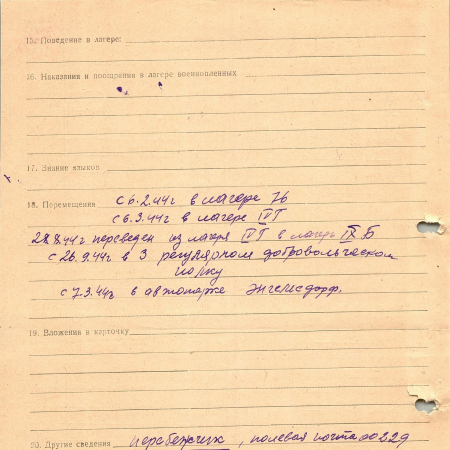 15. Поведение в лагере:
16. Наказания и поощрения в лагере военнопленных
17. Знание языков
18. Перемещения с 6.2.44г в лагере 7б
с 6.3.44г в лагере VГ
28.8.44г переведен из лагеря VГ в лагерь IX Б
с 26.9.44г в 3 регулярном добровольческом
полку
с 7.3.44г в автопарке Энгельсдорф.
19. Вложения в карточку
20. Другие сведения перебежчик, полевая почта 00229